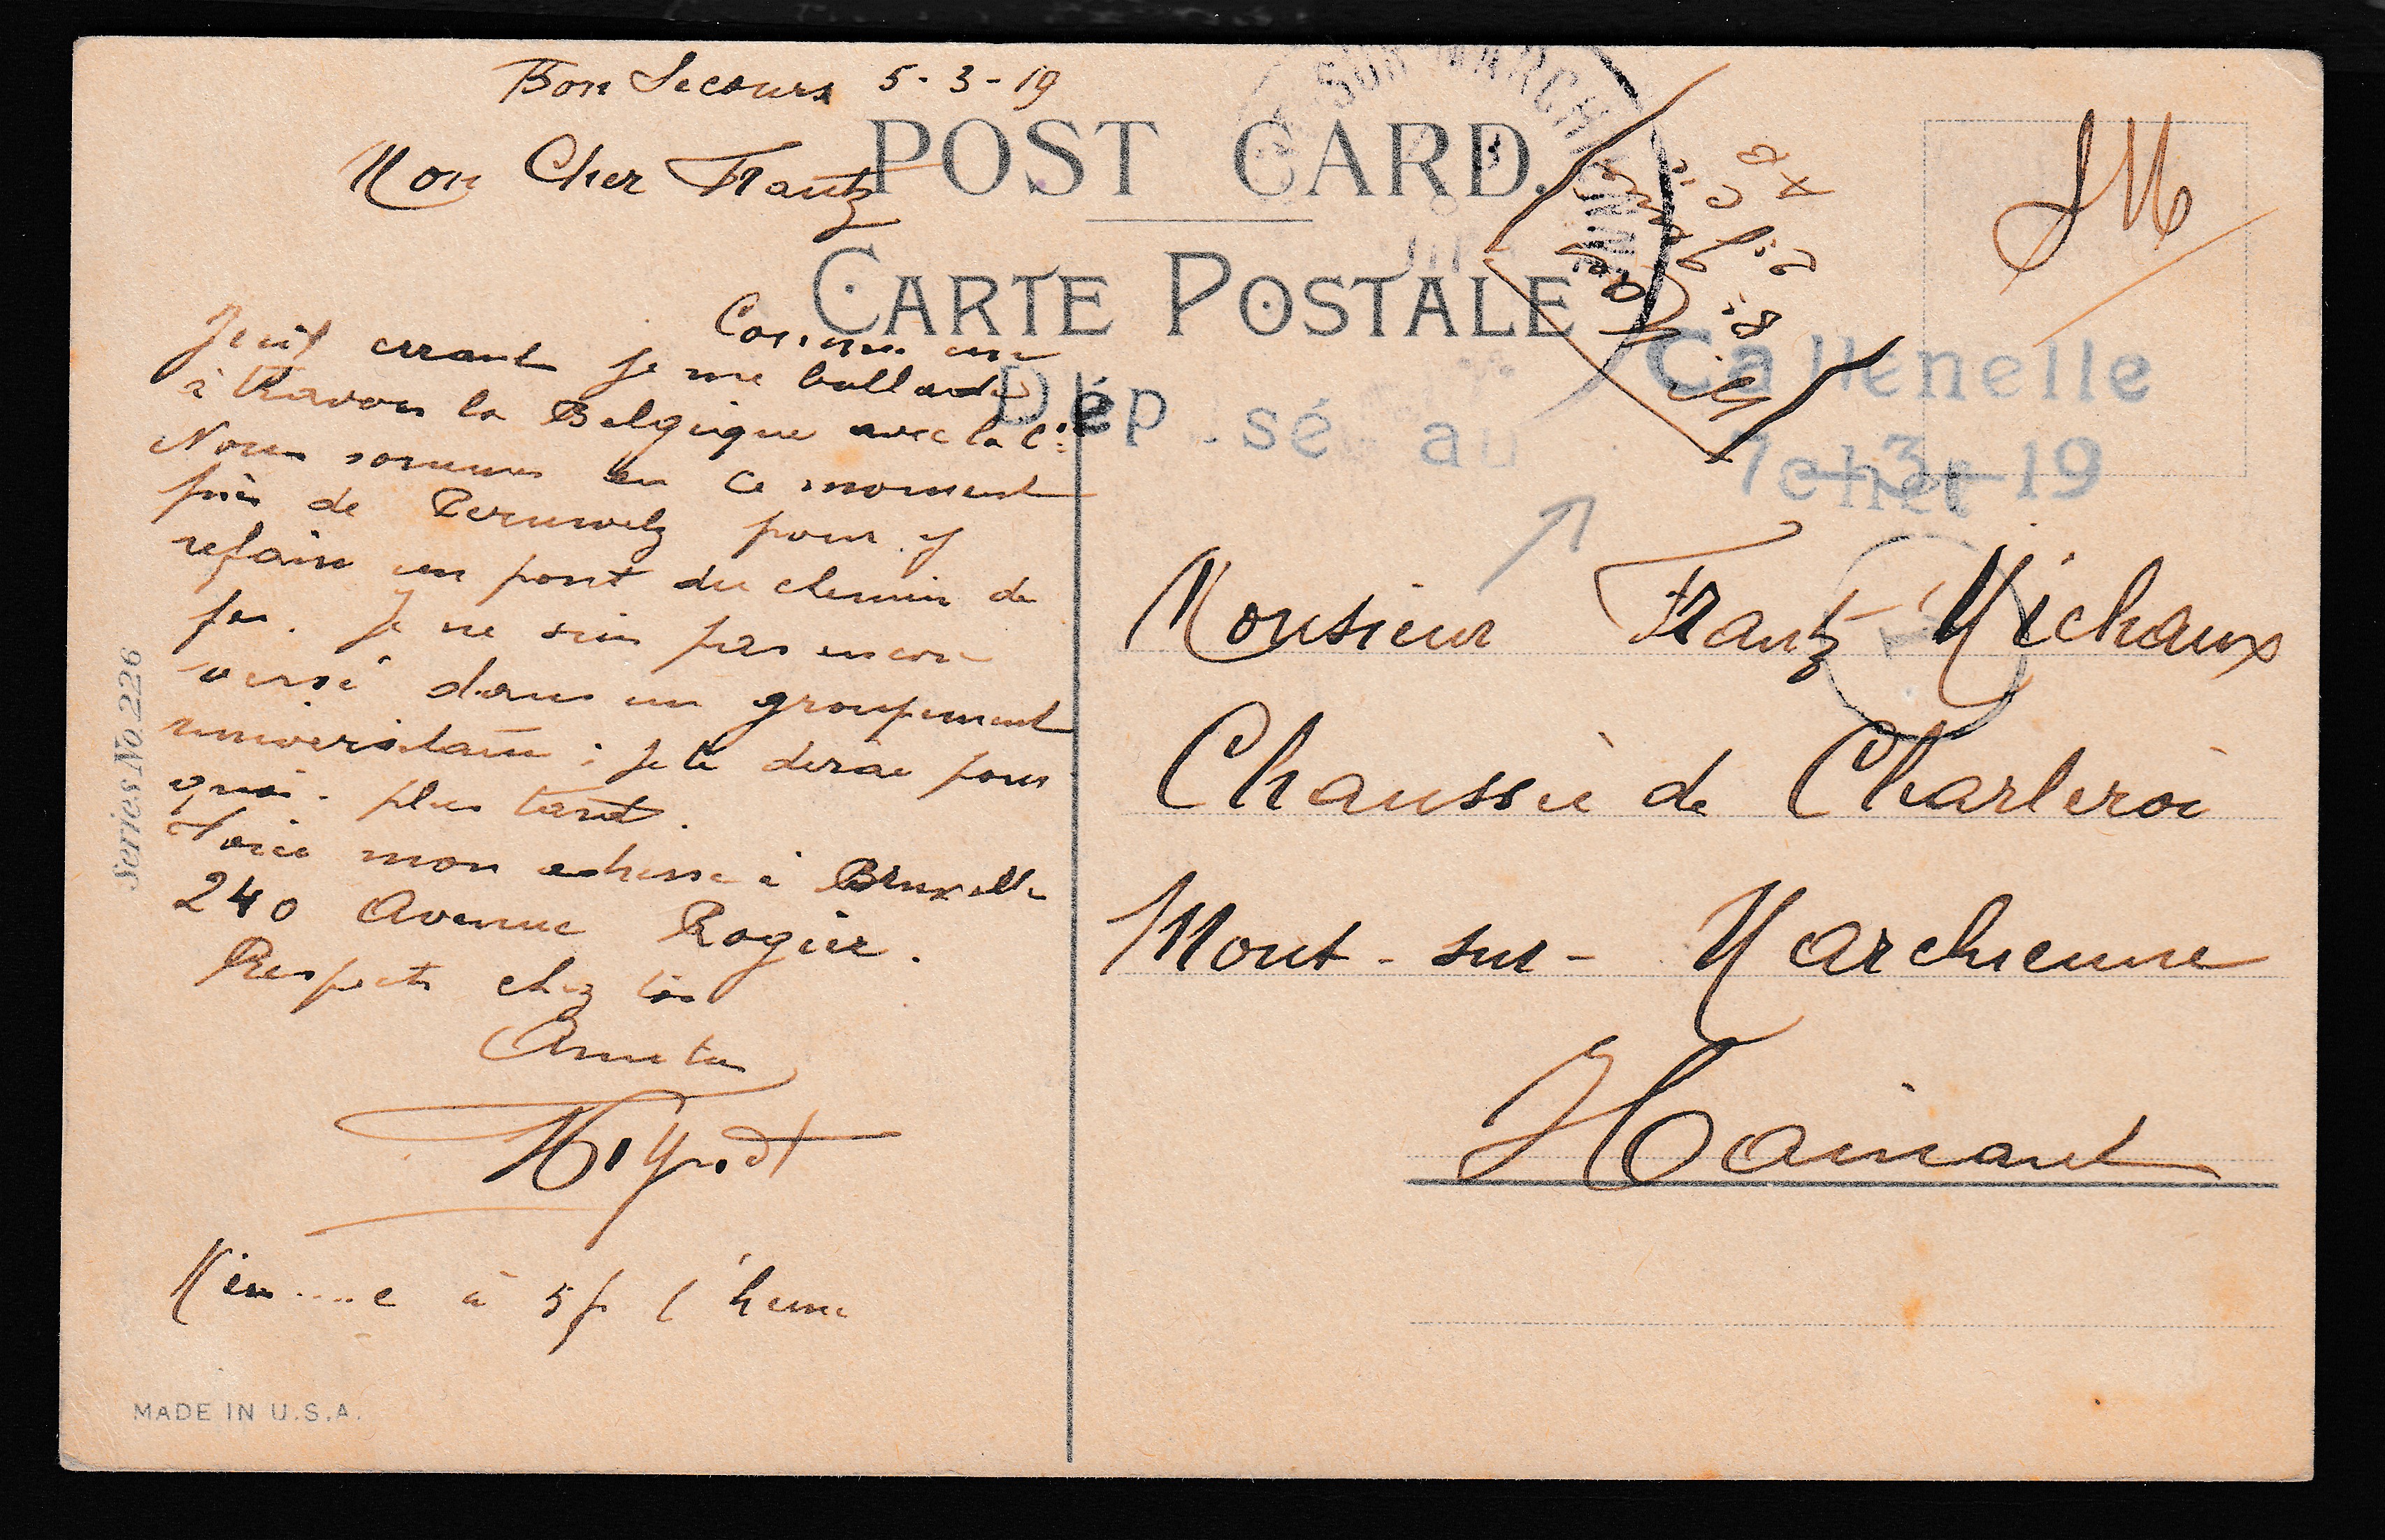 Bon Secours 5-3-19
POST CARD.
Mon Cher Frantz
CARTE POSTALE
Comme un
Juif errant je me ballade
à travers la Belgique avec la
Nous sommes en ce moment
près de Peruwelz pour y
refaire un pont du chemin de
fer. Je ne suis pas encore
versé dans un groupement
universitaire ; je te dirai pour
quoi plus tard.
Voici mon adresse à Bruxelle
240 Avenue Rogier.
Respects chez toi
Series No. 226
MADE IN U.S.A.
SUR MARCHIENNE
SM
Callenelle
Dép sé au
7 3 - 19
Monsieur Frantz Michaux
Chaussée de Charleroi
Mont-sur-Marchienne
Hainaut
à 5f l'heure